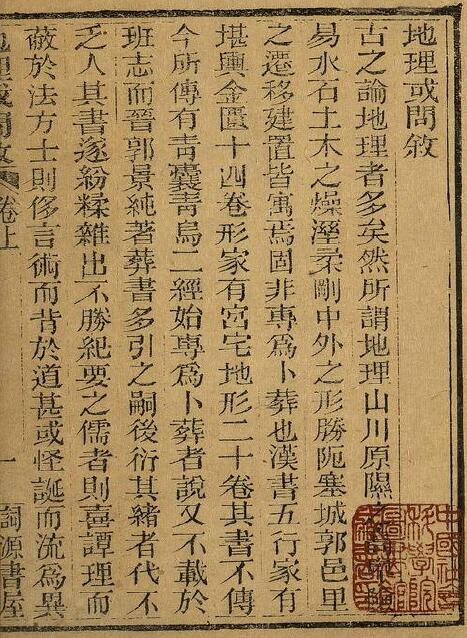 地理或問敘
古之論地理者多矣然所謂地理山川原隰之險
易水石土木之燥溼柔剛中外之形勝阨塞城郭邑里
之遷移建置皆寓焉固非專爲卜葬也漢書五行家有
堪輿金匱十四卷形家有宮宅地形二十卷其書不傳
今所傳有靑囊靑烏二經始專爲卜葬者說又不載於
班志而晉郭景純著葬書多引之嗣後衍其緒者代不
乏人其書遂紛糅雜出不勝紀要之儒者則喜譚理而
蔽於法方士則侈言術而背於道甚或怪誕而流爲異
地理或問敘 卷上 一 詞源書屋